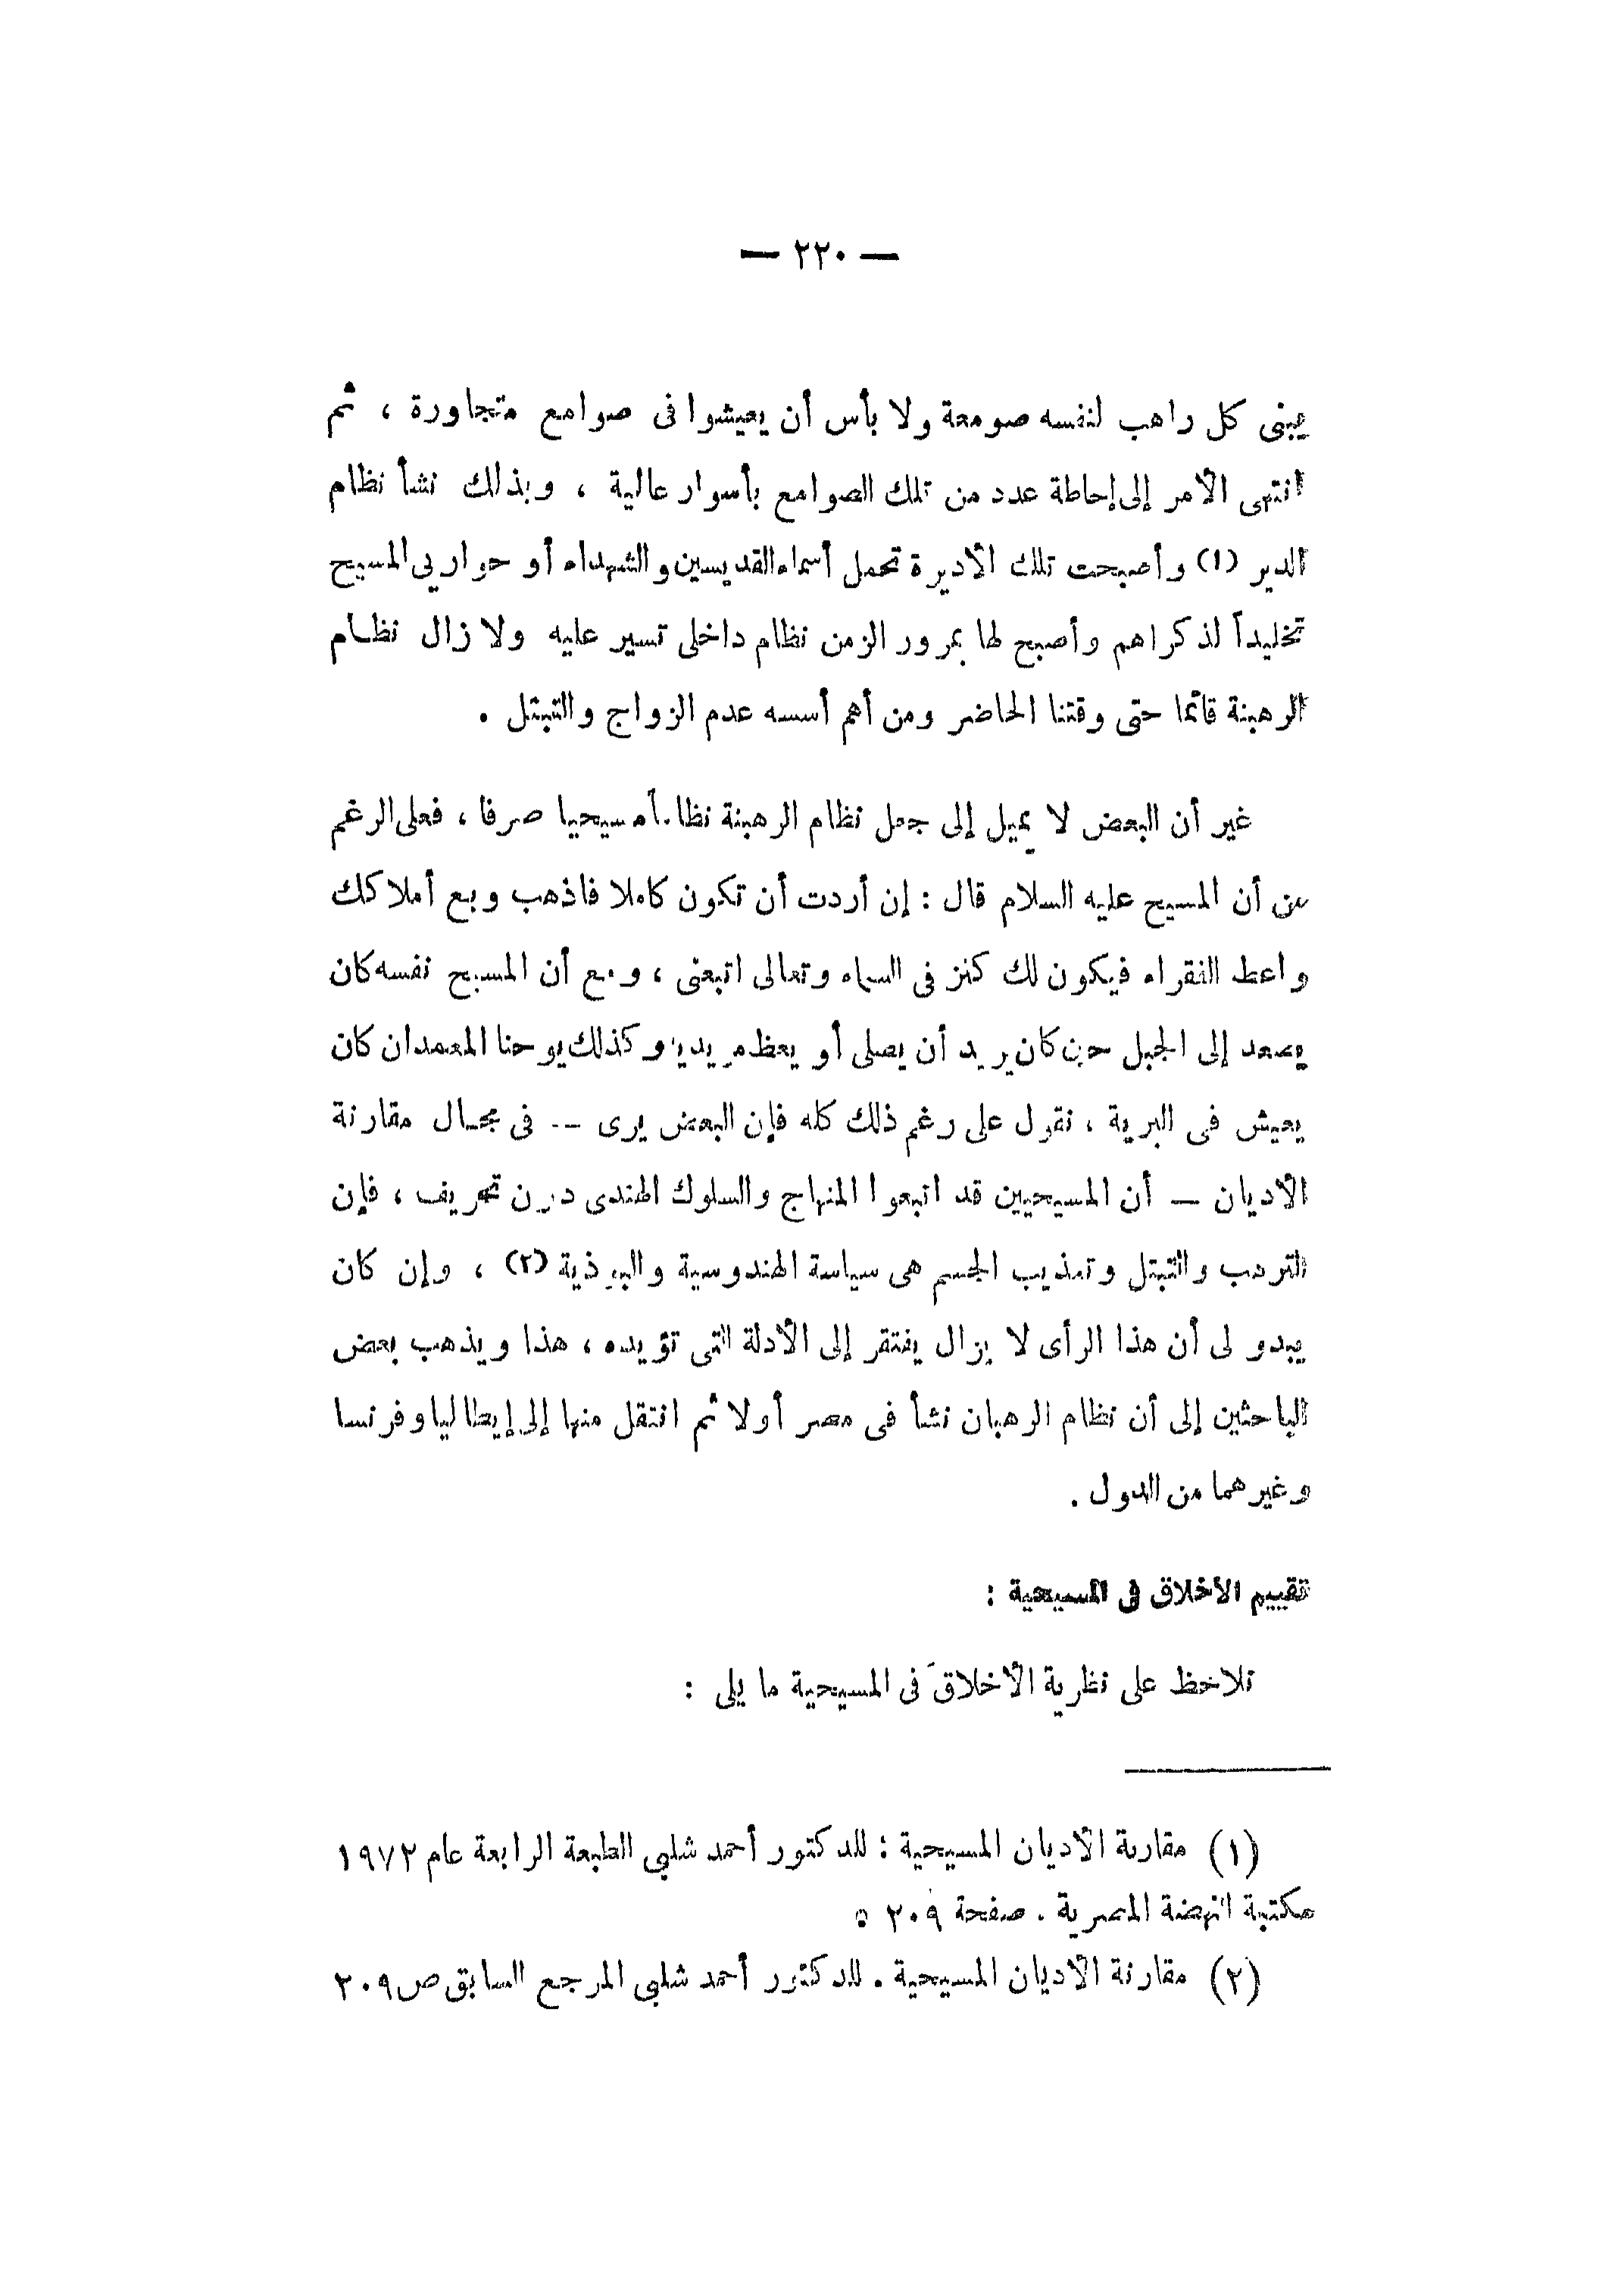 — ٢٢٠ —
يبنى كل راهب لنفسه صومعة ولا بأس أن يعيشوا فى صوامع متجاورة ، ثم
انتهى الأمر إلى إحاطة عدد من تلك الصوامع بأسوار عالية ، وبذلك نشأ نظام
الدير (١) وأصبحت تلك الأديرة تحمل أسماء القديسين والشهداء أو حواريى المسيح
تخليداً لذكراهم وأصبح لها بمرور الزمن نظام داخلى تسير عليه ولا زال نظام
الرهبنة قائما حتى وقتنا الحاضر ومن أهم أسسه عدم الزواج والتبتل .
غير أن البعض لا يميل إلى جعل نظام الرهبنة نظاماً مسيحيا صرفا ، فعلى الرغم
من أن المسيح عليه السلام قال : إن أردت أن تكون كاملا فاذهب وبع أملاكك
واعط الفقراء فيكون لك كنز فى السماء وتعالى اتبعنى ، ومع أن المسيح نفسه كان
يصعد إلى الجبل حين كان يريد أن يصلى أو يعظ مريديه وكذلك يوحنا المعمدان كان
يعيش فى البرية ، نقول على رغم ذلك كله فإن البعض يرى -- فى مجال مقارنة
الأديان — أن المسيحيين قد اتبعوا المنهاج والسلوك الهندى دون تحريف ، فإن
الترهب والتبتل وتعذيب الجسم هى سياسة الهندوسية والبوذية (٢) ، وإن كان
يبدو لى أن هذا الرأى لا يزال يفتقر إلى الأدلة التى تؤيده ، هذا ويذهب بعض
الباحثين إلى أن نظام الرهبان نشأ فى مصر أولا ثم انتقل منها إلى إيطاليا وفرنسا
وغيرهما من الدول .
تقييم الأخلاق فى المسيحية :
نلاحظ على نظرية الأخلاق فى المسيحية ما يلى :
(١) مقارنة الأديان المسيحية : للدكتور أحمد شلبى الطبعة الرابعة عام ١٩٧٢
مكتبة النهضة المصرية . صفحة ٢٠٩ .
(٢) مقارنة الأديان المسيحية . للدكتور أحمد شلبى المرجع السابق ص ٢٠٩